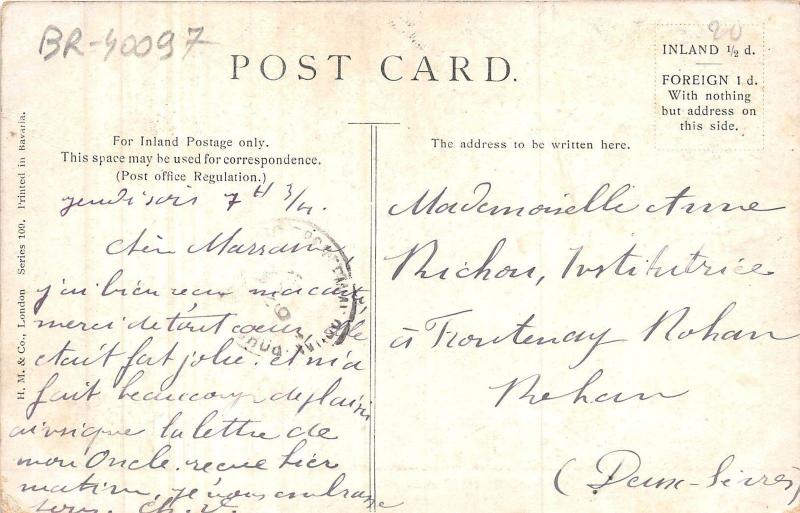 BR-40097
20
POST CARD.
INLAND ½ d.
FOREIGN 1 d.
With nothing
but address on
this side.
For Inland Postage only.
This space may be used for correspondence.
(Post office Regulation.)
The address to be written here.
H. M. & Co., London Series 109. Printed in Bavaria.
jeudi soir 7H 3/4.
Chère Marraine
j'ai bien reçu ma carte
merci de tout cœur, elle
était fort jolie. et m'a
fait beaucoup de plaisir
ainsique la lettre de
mon Oncle. reçue hier
matin, je vous embrasse
tous. Ch. V.
Mademoiselle Anne
Richou, Institutrice
à Frontenay Rohan
Rohan
(Deux-Sèvres)